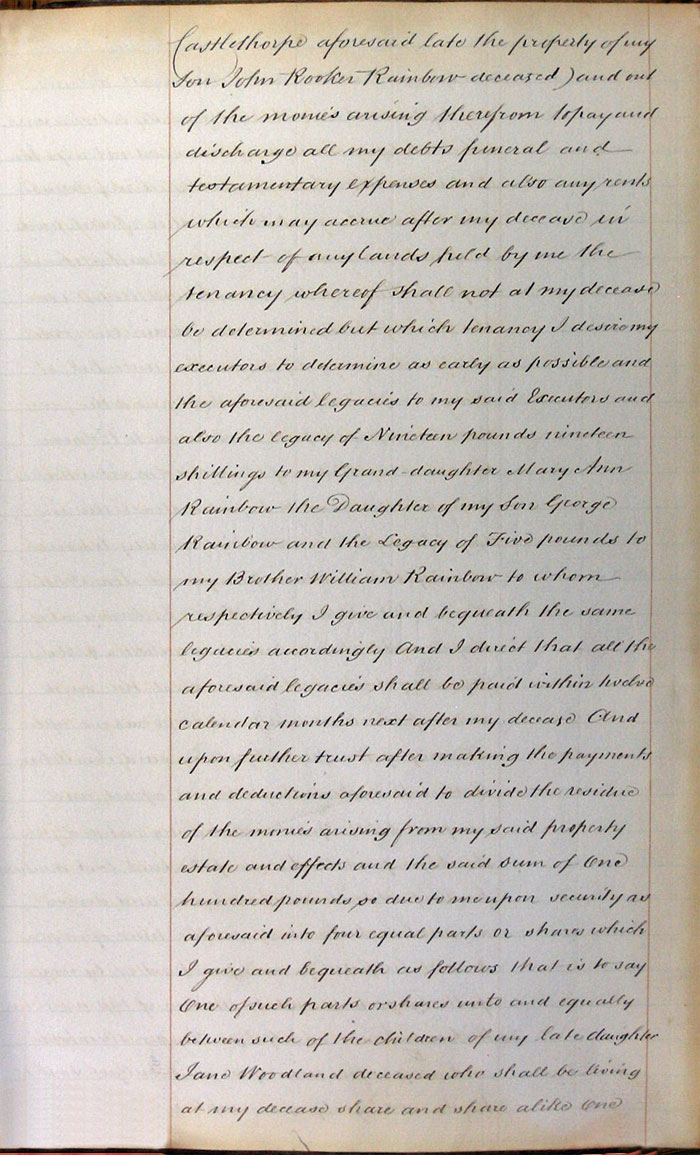 Castlethorpe aforesaid late the property of my
Son John Rooker Rainbow deceased) and out
of the monies arising therefrom to pay and
discharge all my debts funeral and
testamentary expenses and also any rents
which may accrue after my decease in
respect of any lands held by me the
tenancy whereof shall not at my decease
be determined but which tenancy I desire my
executors to determine as early as possible and
the aforesaid legacies to my said Executors and
also the legacy of Nineteen pounds nineteen
shillings to my Grand-daughter Mary Ann
Rainbow the Daughter of my Son George
Rainbow and the Legacy of Five pounds to
my Brother William Rainbow to whom
respectively I give and bequeath the same
legacies accordingly And I direct that all the
aforesaid legacies shall be paid within twelve
calendar months next after my decease And
upon further trust after making the payments
and deductions aforesaid to divide the residue
of the monies arising from my said property
estate and effects and the said sum of One
hundred pounds so due to me upon security as
aforesaid into four equal parts or shares which
I give and bequeath as follows that is to say
One of such parts or shares unto and equally
between such of the children of my late daughter
Jane Woodland deceased who shall be living
at my decease share and share alike One